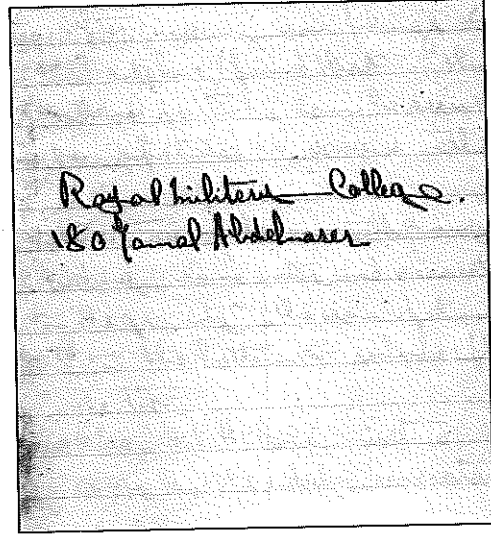 Royal Military College.
180 Gamal Abdelnaser